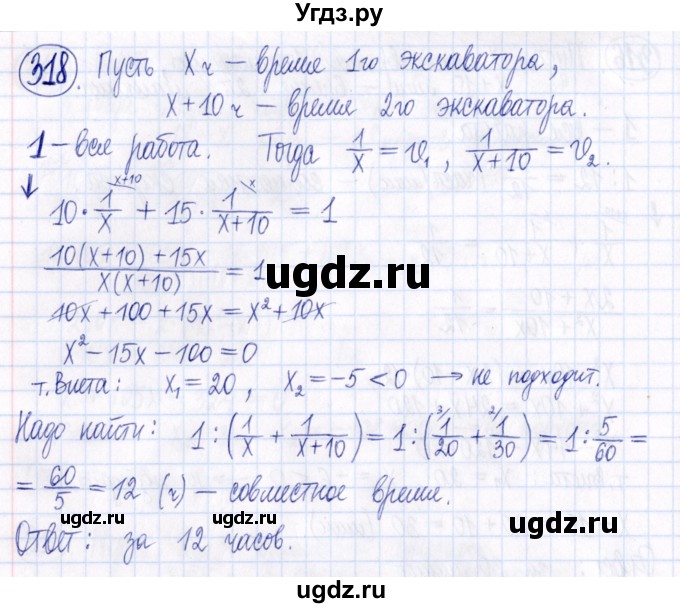 Угдз.ру
318. Пусть Xч – время 1го экскаватора,
X+10 ч – время 2го экскаватора.
1 – вся работа. Тогда 1/X = υ₁, 1/(X+10) = υ₂.
↓ 10 · 1/X (X+10) + 15 · 1/(X+10) (X) = 1
(10(X+10) + 15X) / (X(X+10)) = 1
ugdz.ru
10X + 100 + 15X = X² + 10X
X² – 15X – 100 = 0
т. Виета: X₁ = 20, X₂ = –5 < 0 → не подходит.
Надо найти: 1 : (1/X + 1/(X+10)) = 1 : (3/ 1/20 + 2/ 1/30) = 1 : 5/60 =
= 60/5 = 12 (ч) – совместное время.
ugdz.ru ugdz.ru
Ответ: за 12 часов.
ugdz.ru